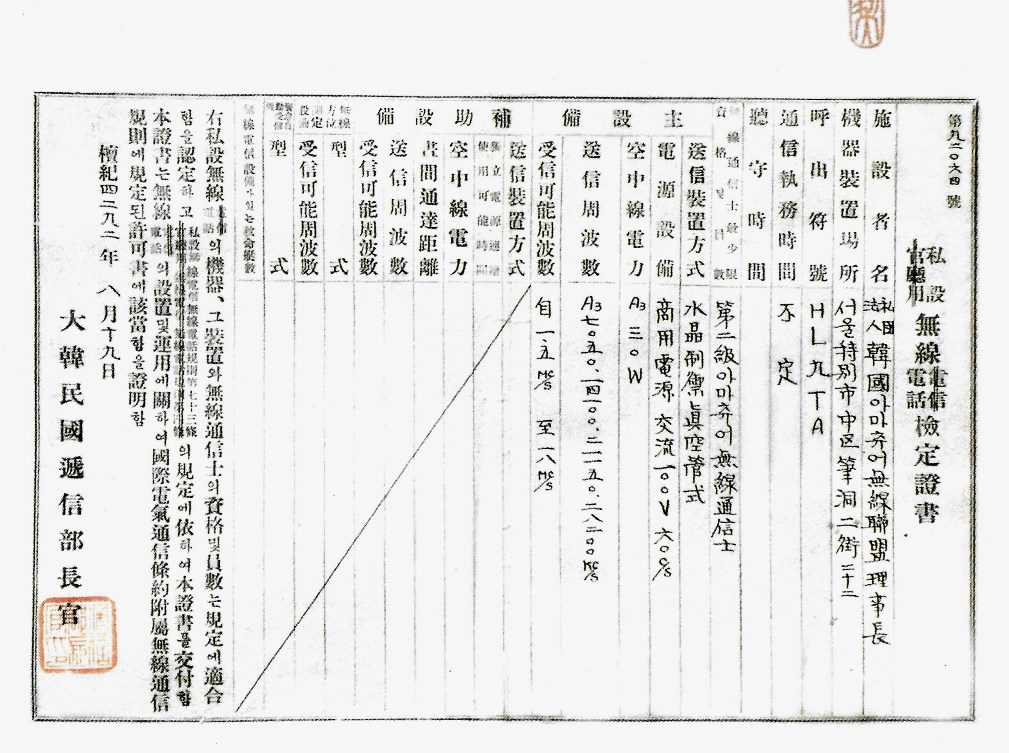 第九二〇六四號
私設
官廳用
無線
電信
電話
檢定證書
施設者名
社團
法人韓國아마츄어無線聯盟理事長
機器裝置場所
서울特別市中区筆洞二街三十二
呼出符號
HL九TA
通信執務時間
不定
聽守時間
無線通信士最少限
資格及員數
第二級아마츄어無線通信士
主設備
送信裝置方式
水晶制禦眞空管式
電源設備
商用電源 交流一〇〇V 六〇c/s
空中線電力
A3 三〇W
送信周波數
A3 七〇五〇.一四一〇〇.二一一五〇.二八二〇〇 Kc/s
受信可能周波數
自一.五 Mc/s 至一八 Mc/s
補助設備
送信裝置方式
空中線電力
晝間通達距離
送信周波數
受信可能周波數
無線
方位
測定
型式
受信可能周波數
型式
右私設無線電信電話의機器、그裝置와無線通信士의資格및員數는規定에適合
함을認定하고
의規定에依하여本證書를交付함
本證書는無線電信電話의設置및運用에關하여國際電氣通信條約附屬無線通信
規則에規定된許可書에該當함을證明함
檀紀四二九二年 八月十九日
大韓民國遞信部長官